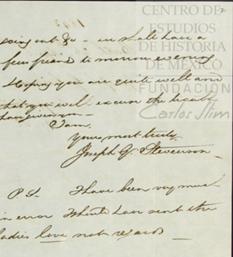 CENTRO DE
ESTUDIOS
DE HISTORIA
DE MÉXICO
FUNDACIÓN
Carlos Slim
going out &c - we shall have a
few friends to morrow evening
Hoping you are quite well and
that you will excuse the
I am.
Yours most truly
Joseph G. Stevenson
P.S. I have been very much
in error I should have sent the
ladies love not regards